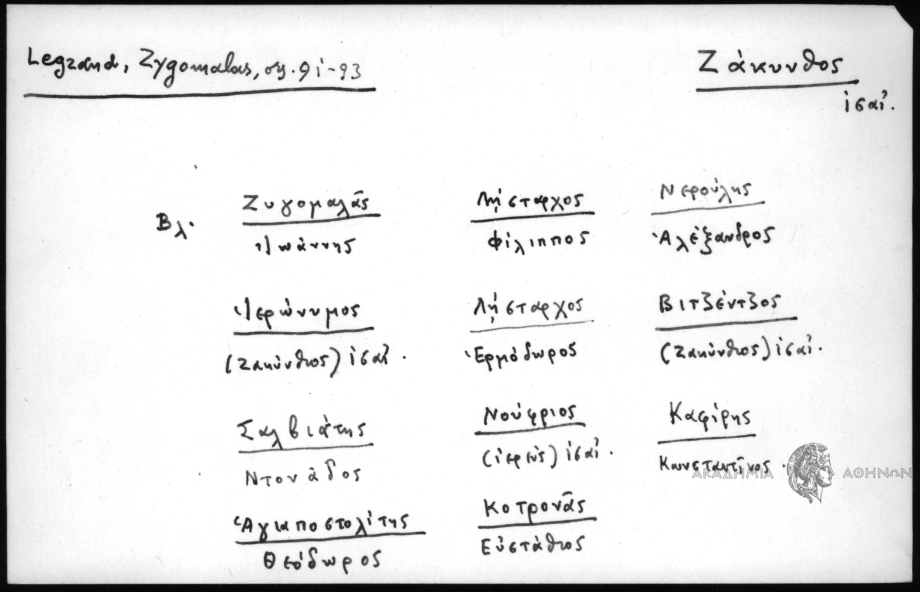 Legrand, Zygomalas, σσ. 91-93
Ζάκυνθος
ις αἰ.
Βλ.
Ζυγομαλᾶς
Ἰωάννης
Λῄσταρχος
Φίλιππος
Νερούλης
Ἀλέξανδρος
Ἱερώνυμος
(Ζακύνθιος) ις αἰ.
Λῄσταρχος
Ἑρμόδωρος
Βιτζέντζος
(Ζακύνθιος) ις αἰ.
Σαλβιάτης
Ντονάδος
Νούφριος
(ἱερεὺς) ις αἰ.
Καφίρης
Κωνσταντῖνος
ΑΚΑΔΗΜΙΑ ΑΘΗΝΩΝ
Ἁγιαποστολίτης
Θεόδωρος
Κοτρονᾶς
Εὐστάθιος